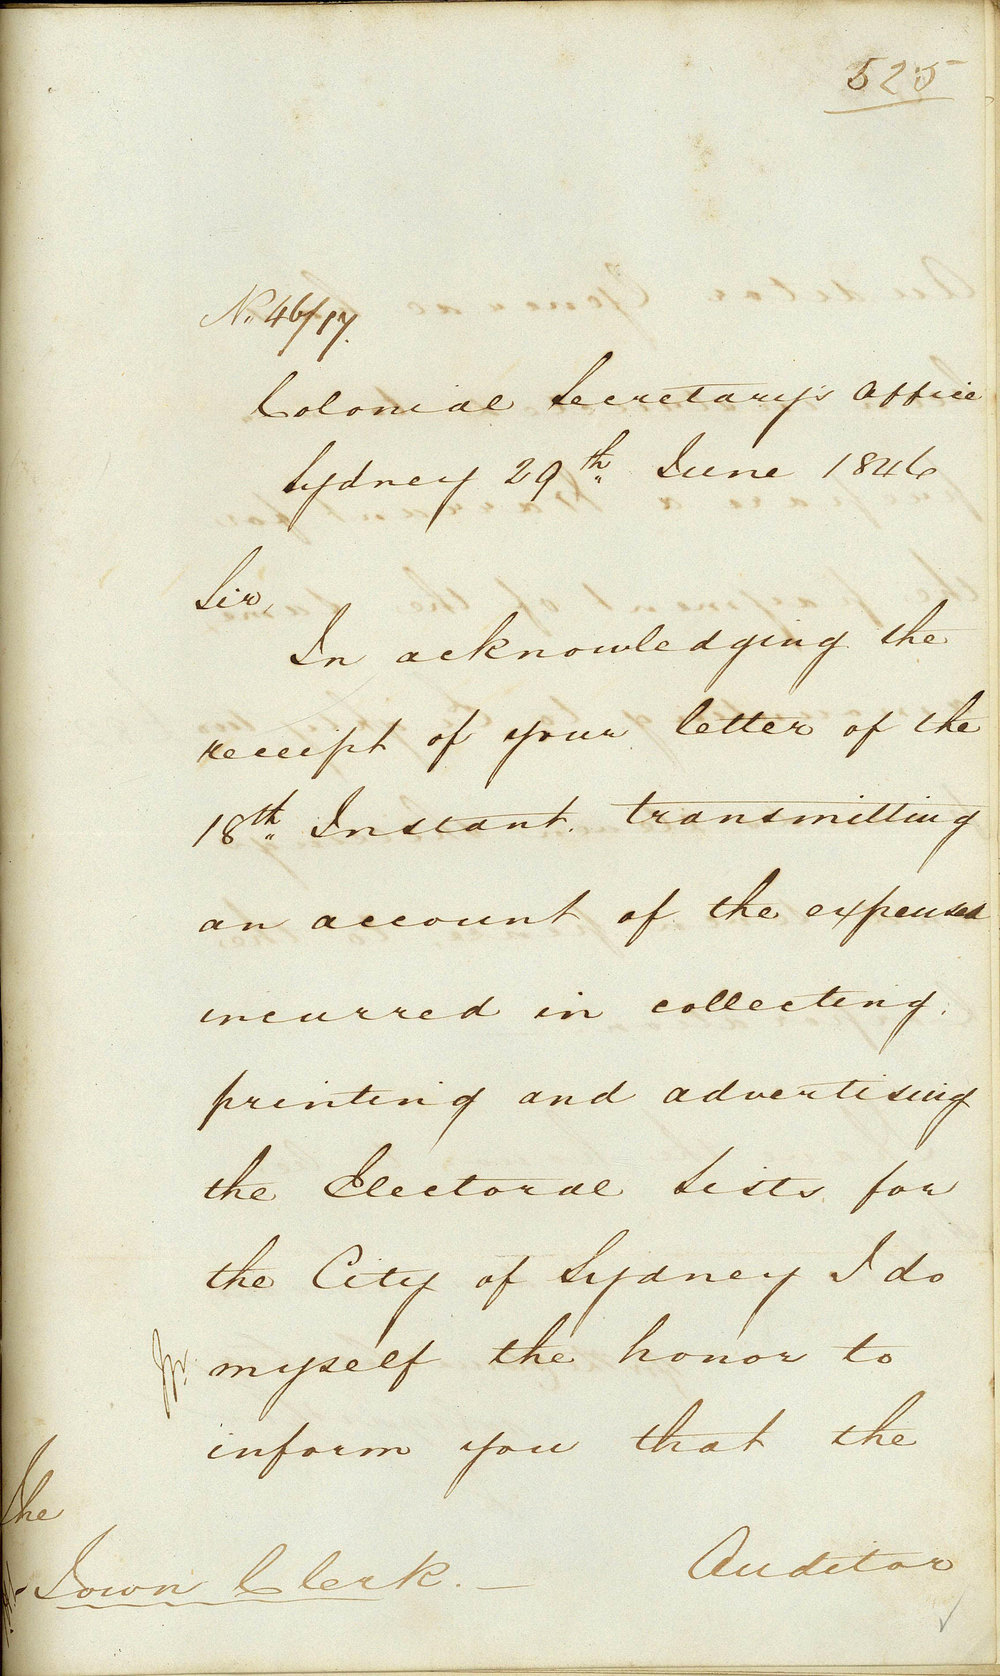 525
No. 46/17.
Colonial Secretary's Office
Sydney 29th June 1846
Sir,
In acknowledging the
receipt of your letter of the
18th Instant. transmitting
an account of the expenses
incurred in collecting,
printing and advertising
the Electoral Lists for
the City of Sydney I do
myself the honor to
inform you that the
Auditor
The
Town Clerk. —